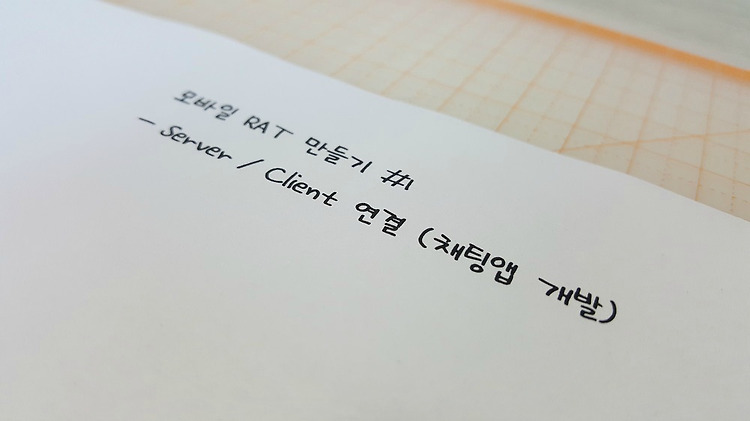 모바일 RAT 만들기 #1
- Server / Client 연결 (채팅앱 개발)